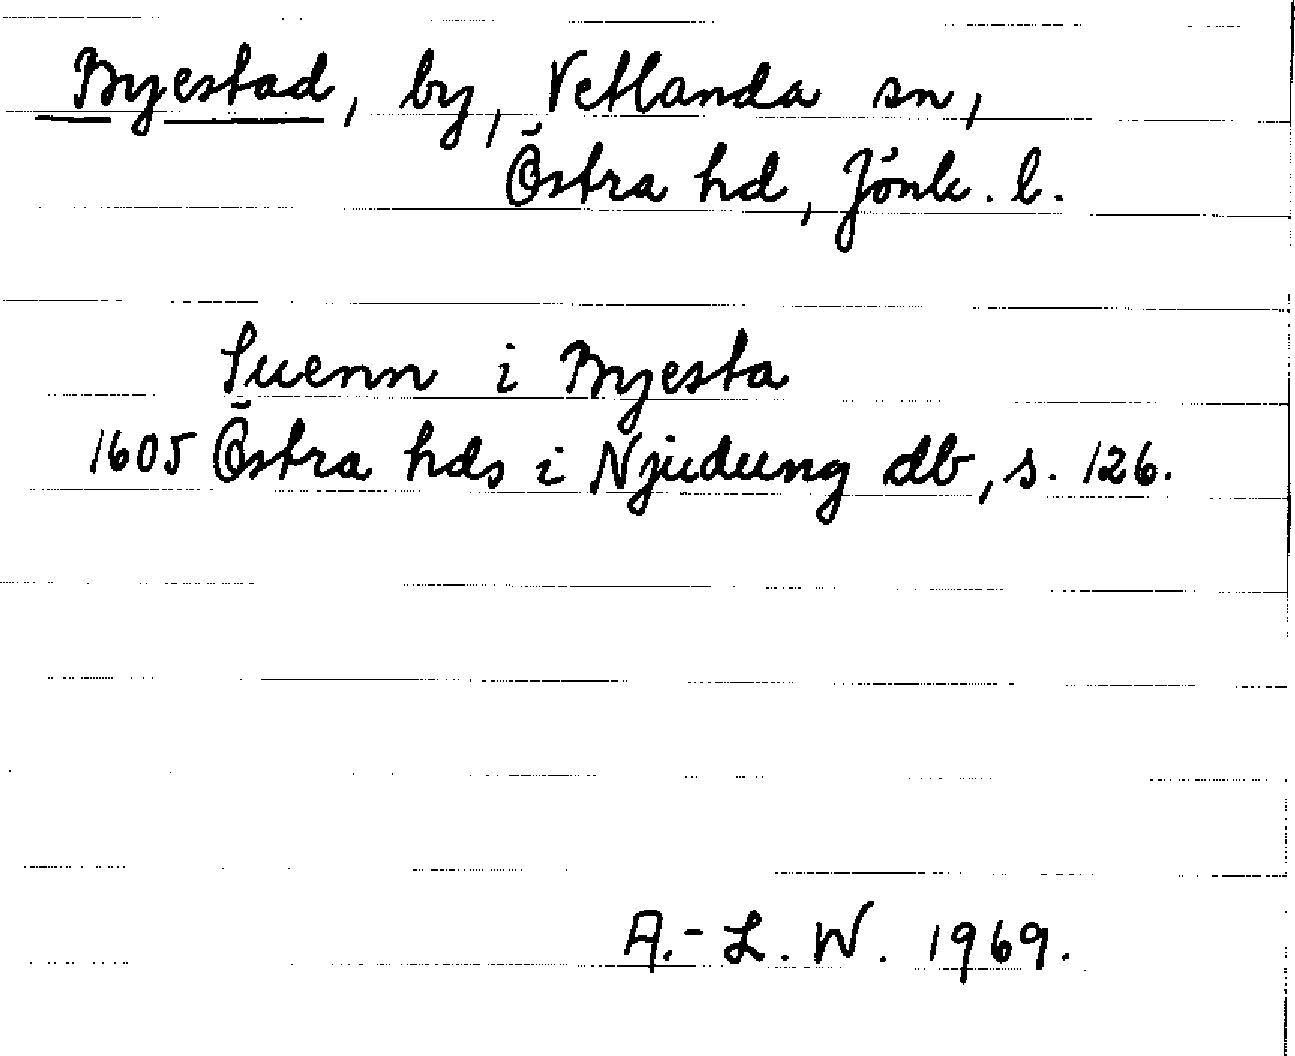 Byestad, by, Vetlanda sn,
Östra hd, Jönk. l.
Suenn i Byesta
1605 Östra hds i Njudung db, s. 126.
A.-L. W. 1969.